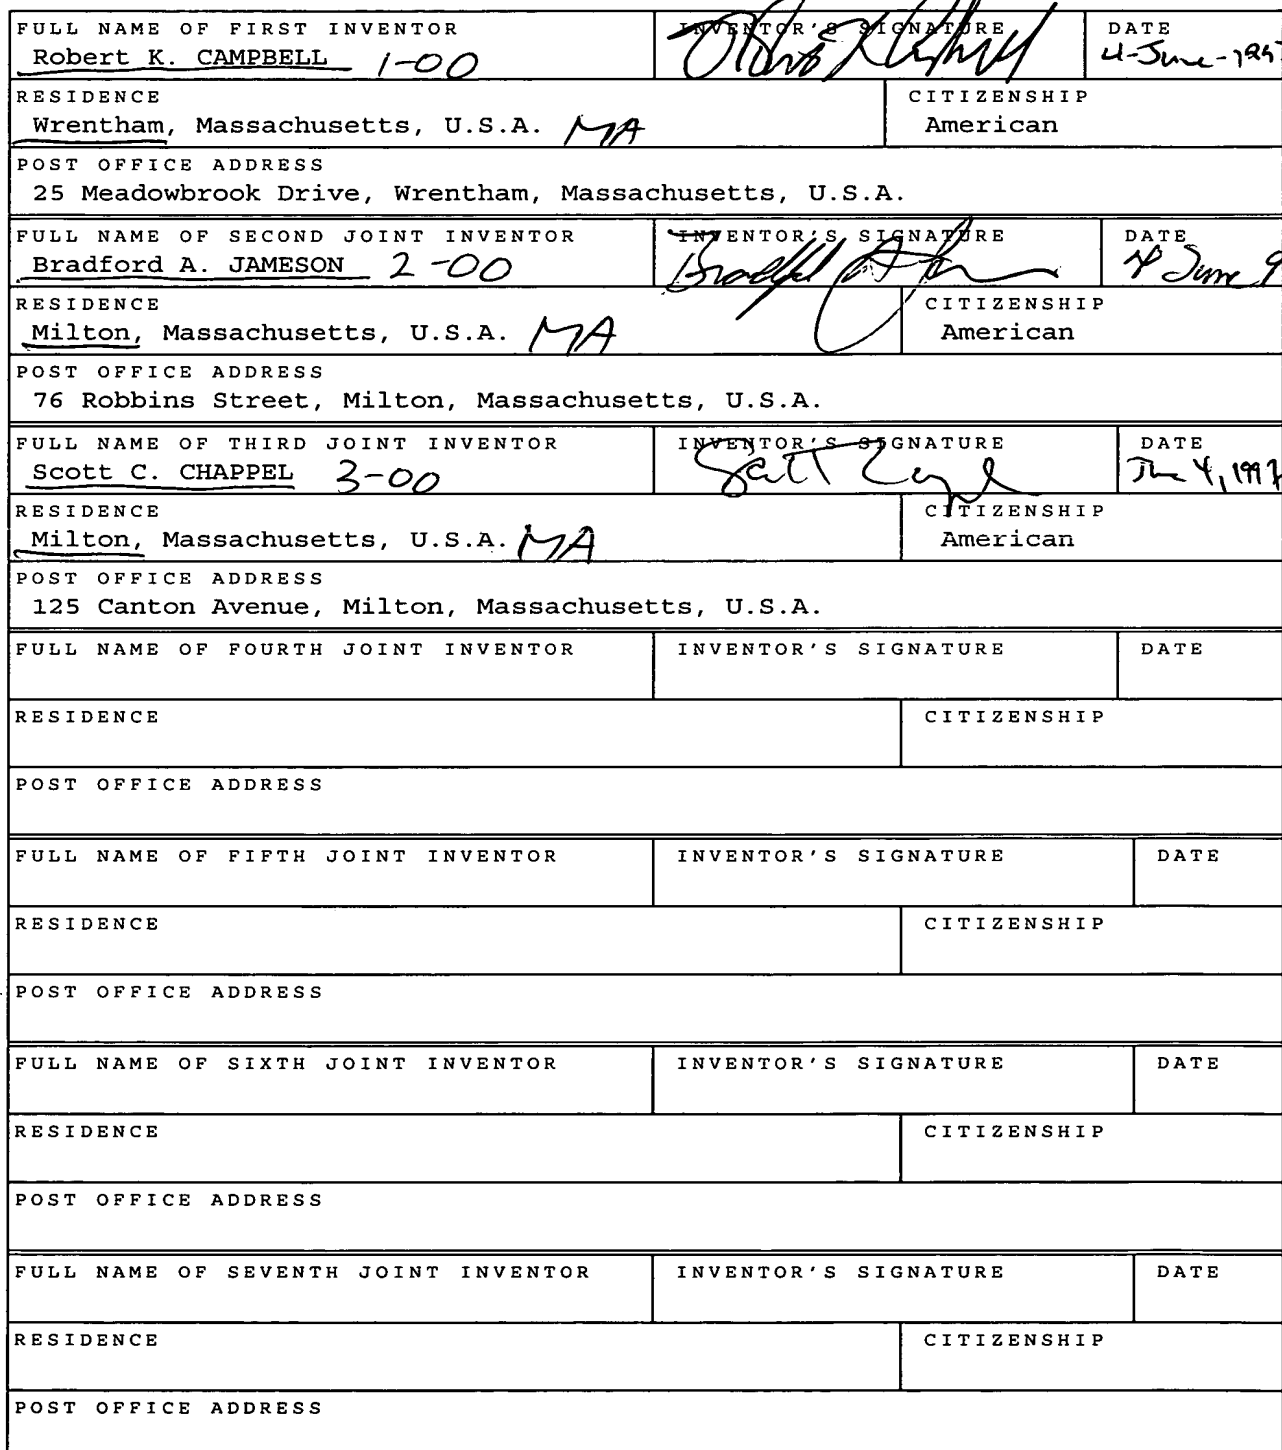 FULL NAME OF FIRST INVENTOR INVENTOR'S SIGNATURE DATE
Robert K. CAMPBELL 1-00 4-June-1997
RESIDENCE CITIZENSHIP
Wrentham, Massachusetts, U.S.A. MA American
POST OFFICE ADDRESS
25 Meadowbrook Drive, Wrentham, Massachusetts, U.S.A.
FULL NAME OF SECOND JOINT INVENTOR INVENTOR'S SIGNATURE DATE
Bradford A. JAMESON 2-00 4 June 9
RESIDENCE CITIZENSHIP
Milton, Massachusetts, U.S.A. MA American
POST OFFICE ADDRESS
76 Robbins Street, Milton, Massachusetts, U.S.A.
FULL NAME OF THIRD JOINT INVENTOR INVENTOR'S SIGNATURE DATE
Scott C. CHAPPEL 3-00 June 4, 1997
RESIDENCE CITIZENSHIP
Milton, Massachusetts, U.S.A. MA American
POST OFFICE ADDRESS
125 Canton Avenue, Milton, Massachusetts, U.S.A.
FULL NAME OF FOURTH JOINT INVENTOR INVENTOR'S SIGNATURE DATE
RESIDENCE CITIZENSHIP
POST OFFICE ADDRESS
FULL NAME OF FIFTH JOINT INVENTOR INVENTOR'S SIGNATURE DATE
RESIDENCE CITIZENSHIP
POST OFFICE ADDRESS
FULL NAME OF SIXTH JOINT INVENTOR INVENTOR'S SIGNATURE DATE
RESIDENCE CITIZENSHIP
POST OFFICE ADDRESS
FULL NAME OF SEVENTH JOINT INVENTOR INVENTOR'S SIGNATURE DATE
RESIDENCE CITIZENSHIP
POST OFFICE ADDRESS